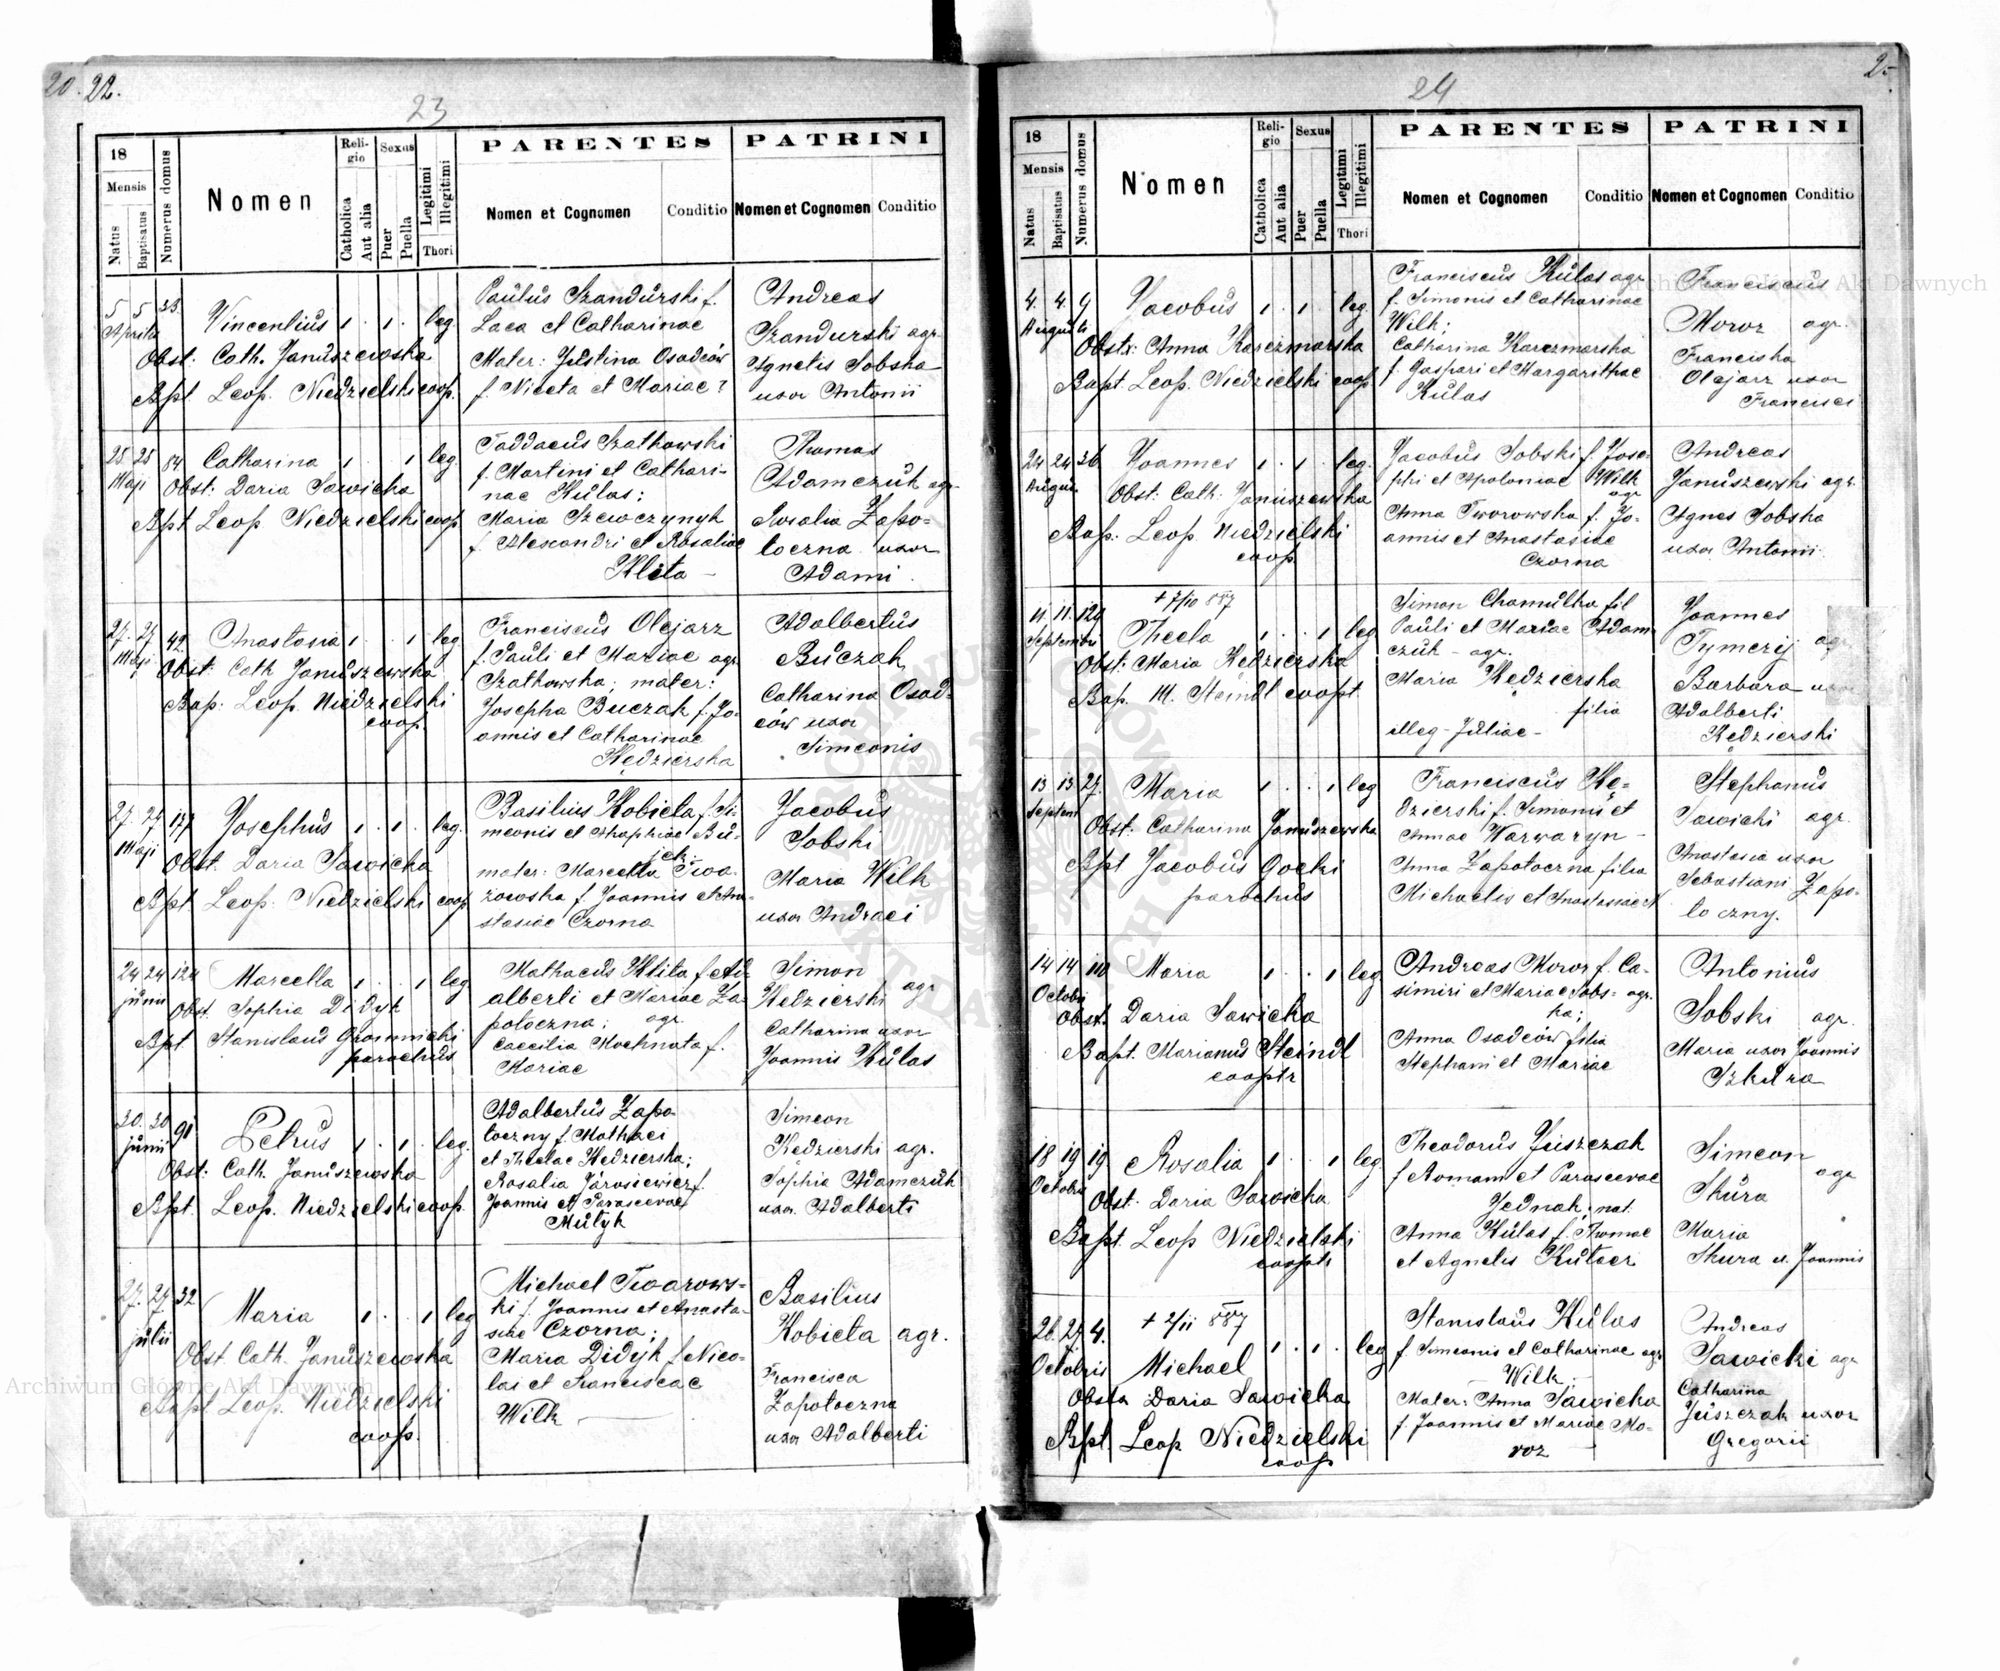 20. 22.
23
18
Mensis
Natus
Baptisatus
Numerus domus
Nomen
Religio
Catholica
Aut alia
Sexus
Puer
Puella
Legitimi
Illegitimi
Thori
PARENTES
Nomen et Cognomen
Conditio
PATRINI
Nomen et Cognomen
Conditio
5 5 33.
Aprilis
Vincentius 1 . 1 . leg.
Obst. Cath. Januszewska
Bpt Leop. Niedzielski coop.
Paulus Szandurski f.
Laca et Catharinae
Mater: Justina Osadców
f. Niceta et Mariae?
Andreas
Szandurski agr.
Agnetis Sobska
uxor Antonii
25 25 84
Maji
Catharina 1 . . 1 leg.
Obst: Daria Sawicka
Bpt Leop. Niedzielski coop
Taddaeus Szatkowski
f. Martini et Cathari-
nae Kulas;
Maria Szewczynyk
f. Alexandri et Rosaliae
Klita -
Thomas
Adamczuk agr.
Rosalia Zapo-
toczna uxor
Adami
27. 27 42.
Maji
Anastasia 1 . . 1 leg
Obst: Cath Januszewska
Bap: Leop. Niedzielski
coop.
Franciscus Olejarz
f. Pauli et Mariae agr.
Szatkowska; mater:
Josepha Buczak f. Jo-
annis et Catharinae
Kędzierska
Adalbertus
Buczak
Catharina Osad-
ców uxor
Simeonis
27. 27 197
Maji
Josephus 1 . 1 . leg.
Obst. Daria Sawicka
Bpt Leop. Niedzielski coop
Basilius Kobieta f. Si-
meonis et Bu-
mater: Marcella Two-
rowska f. Joannis et Ana-
stasiae Czorna
Jacobus
Sobski
Maria Wilk
uxor Andraei
24 24 124
junii
Marcella 1 . . 1 leg
Obst. Sophia Didyk
Bpt. Stanislaus Gromnicki
parochus
Mathaeus Klita f. Ad
alberti et Mariae Za-
potoczna; agr.
Caecilia Mochnata f.
Mariae
Simon
Kędzierski agr
Catharina uxor
Joannis Kulas
30. 30 91
junii
Petrus 1 . 1 . leg.
Obst: Cath. Januszewska
Bpt. Leop. Niedzielski coop.
Adalbertus Zapo
toczny f. Mathaei
et Theclae Kedzierska;
Rosalia Jarosiewicz f.
Joannis et Parascevae
Mulyk
Simeon
Kedzierski agr.
Sophia Adamczuk
uxor Adalberti
27. 27. 32
julii
Maria 1 . . 1 leg
Obst. Cath. Januszewska
Bapt. Leop. Niedzielski
coop.
Michael Twarows-
ki f. Joannis et Anasta-
siae Czorna;
Maria Didyk f. Nico-
lai et Franciscae
Wilk
Basilius
Kobieta agr.
Francisca
Zapotoczna
uxor Adalberti
24
18
Mensis
Natus
Baptisatus
Numerus domus
Nomen
Religio
Catholica
Aut alia
Sexus
Puer
Puella
Legitimi
Illegitimi
Thori
PARENTES
Nomen et Cognomen
Conditio
PATRINI
Nomen et Cognomen
Conditio
4. 4. 4
Augusti
Jacobus 1 . 1 . leg.
Obstx: Anna Karczmarska
Bapt. Leop. Niedzielski coop
Franciscus Kulas agr
f. Simonis et Catharinae
Wilk;
Catharina Karczmarska
f. Gaspari et Margarithae
Kulas
Franciscus
Moroz agr.
Franciska
Olejarz uxor
Francisci
24 24 36
August.
Joannes 1 . 1 . leg.
Obst: Cath: Januszewska
Bap. Leop Niedzielski
coop
Jacobus Sobski f. Jose-
phi et Apoloniae Wilk
agr
Anna Tworowska f. Jo-
annis et Anastasiae
Czorna
Andreas
Januszewski agr.
Agnes Sobska
uxor Antonii
11. 11. 124
Septembri
+ 7/10 887
Thecla 1 . . 1 leg
Obst: Maria Kędzierska
Bap. M. Steindl coopt.
Simon Chamulka fil
Pauli et Mariae Adam
czuk - agr.
Maria Kędzierska
filia
illeg - Juliae -
Joannes
Tymczij agr
Barbara uxor
Adalberti
Kędzierski
13 13 27.
Septem
Maria 1 . . 1 leg
Obst: Catharina Januszewska
Bpt Jacobus Gocki
parochus
Franciscus Kę-
dzierski f. Simonis et
Annae Warwaryn -
Anna Zapotoczna filia
Michaelis et Anastasiae
Stephanus
Sawicki agr.
Anastasia uxor
Sebastiani Zapo-
toczny.
14 14 110
Octobri
Maria 1 . . 1 leg
Obst: Daria Sawicka
Bapt. Marianus Steindl
cooptr
Andreas Moroz f. Ca-
simiri et Mariae Sobs- agr.
ka;
Anna Osadców filia
Stephani et Mariae
Antonius
Sobski agr.
Maria uxor Joannis
Szkura
18 19 19
Octobris
Rosalia 1 . . 1 leg
Obst. Daria Sawicka
Bapt. Leop Niedzielski
cooptr
Theodorus Juszczak
f Romani et Parascevae
Jednak; nat.
Anna Kulas f. Thomae
et Agnetis
Simeon
Skura agr
Maria
Skura u. Joannis
26. 27 4.
Octobris
+ 2/11 887
Michael 1 . 1 . leg
Obsta Daria Sawicka
Bpt. Leop Niedzielski
coop
Stanislaus Kulas
f. Simeonis et Catharinae agr
Wilk;
Mater: Anna Sawicka
f. Joannis et Mariae Mo-
roz
Andreas
Sawicki agr
Catharina
Juszczak uxor
Gregorii
Archiwum Główne Akt Dawnych
Archiwum Główne Akt Dawnych